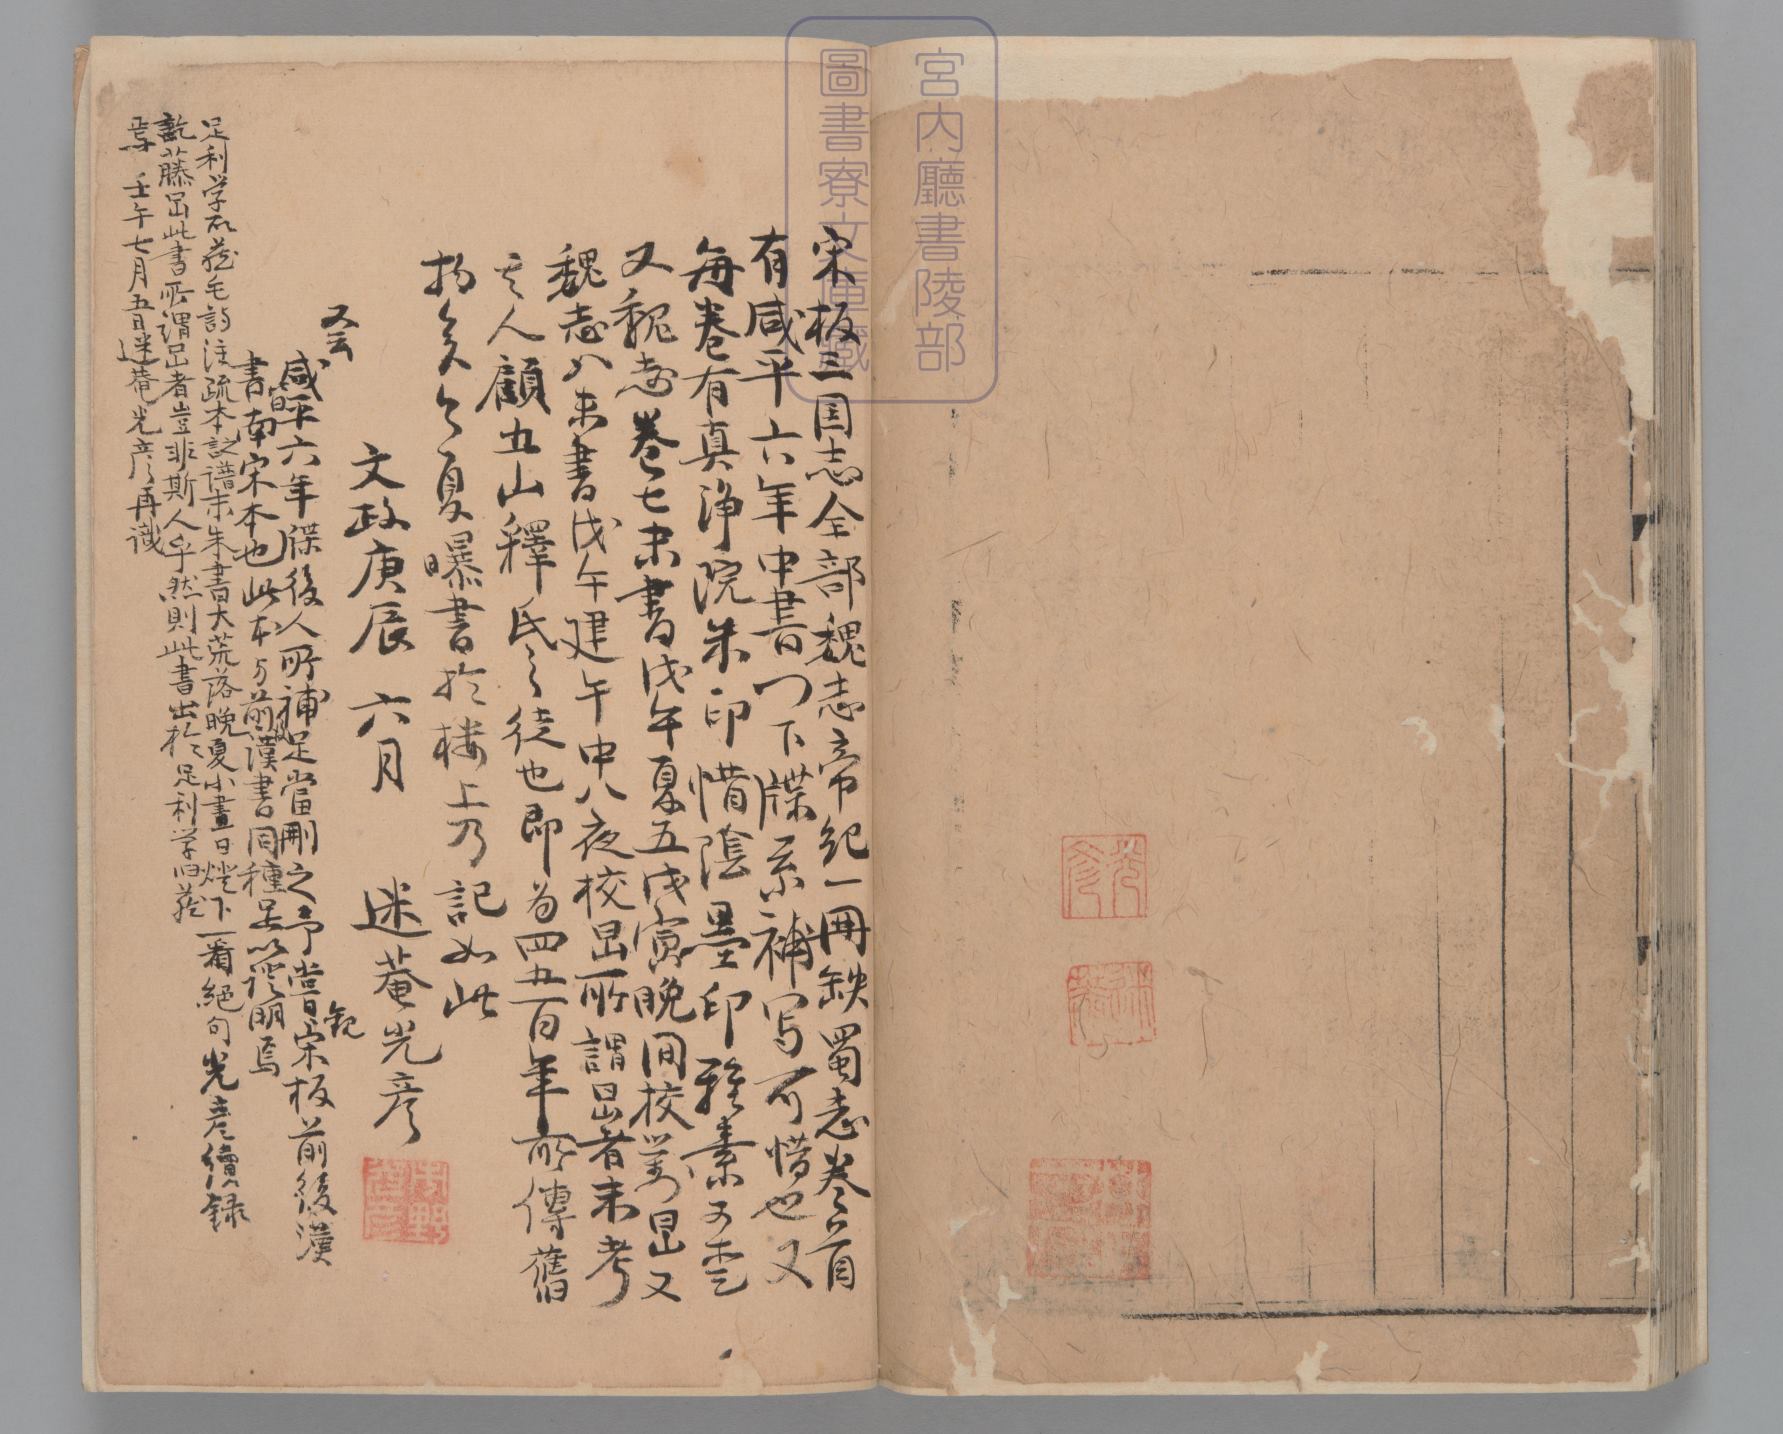 宮内廳書陵部
圖書寮文庫藏
宋板三国志全部魏志帝紀一冊缺蜀志巻首
有咸平六年中書門下牒系補写可惜也又
毎巻有真浄院朱印惜陰墨印雅素可
又魏志巻七末書戊午夏五戊寅晩間校了昌又
魏志八末書戊午建午中八夜校昌所謂昌者未考
其人顧五山釋氏之徒也即為四五百年所傳舊
物矣今夏曝書於楼上乃記如此
文政庚辰 六月 迷菴光彦
又云
咸平六年牒後人所補足當刪之予嘗観宋板前後漢
書南宋本也此本与前漢書同種足以證明焉
足利学所蔵毛詩注疏本詩譜末朱書大荒落晩夏小盡日燈下一看絶句光彦續録
訖藤昌此書所謂昌者豈非斯人乎然則此書出於足利学旧蔵
焉 壬午七月五日迷菴光彦再識